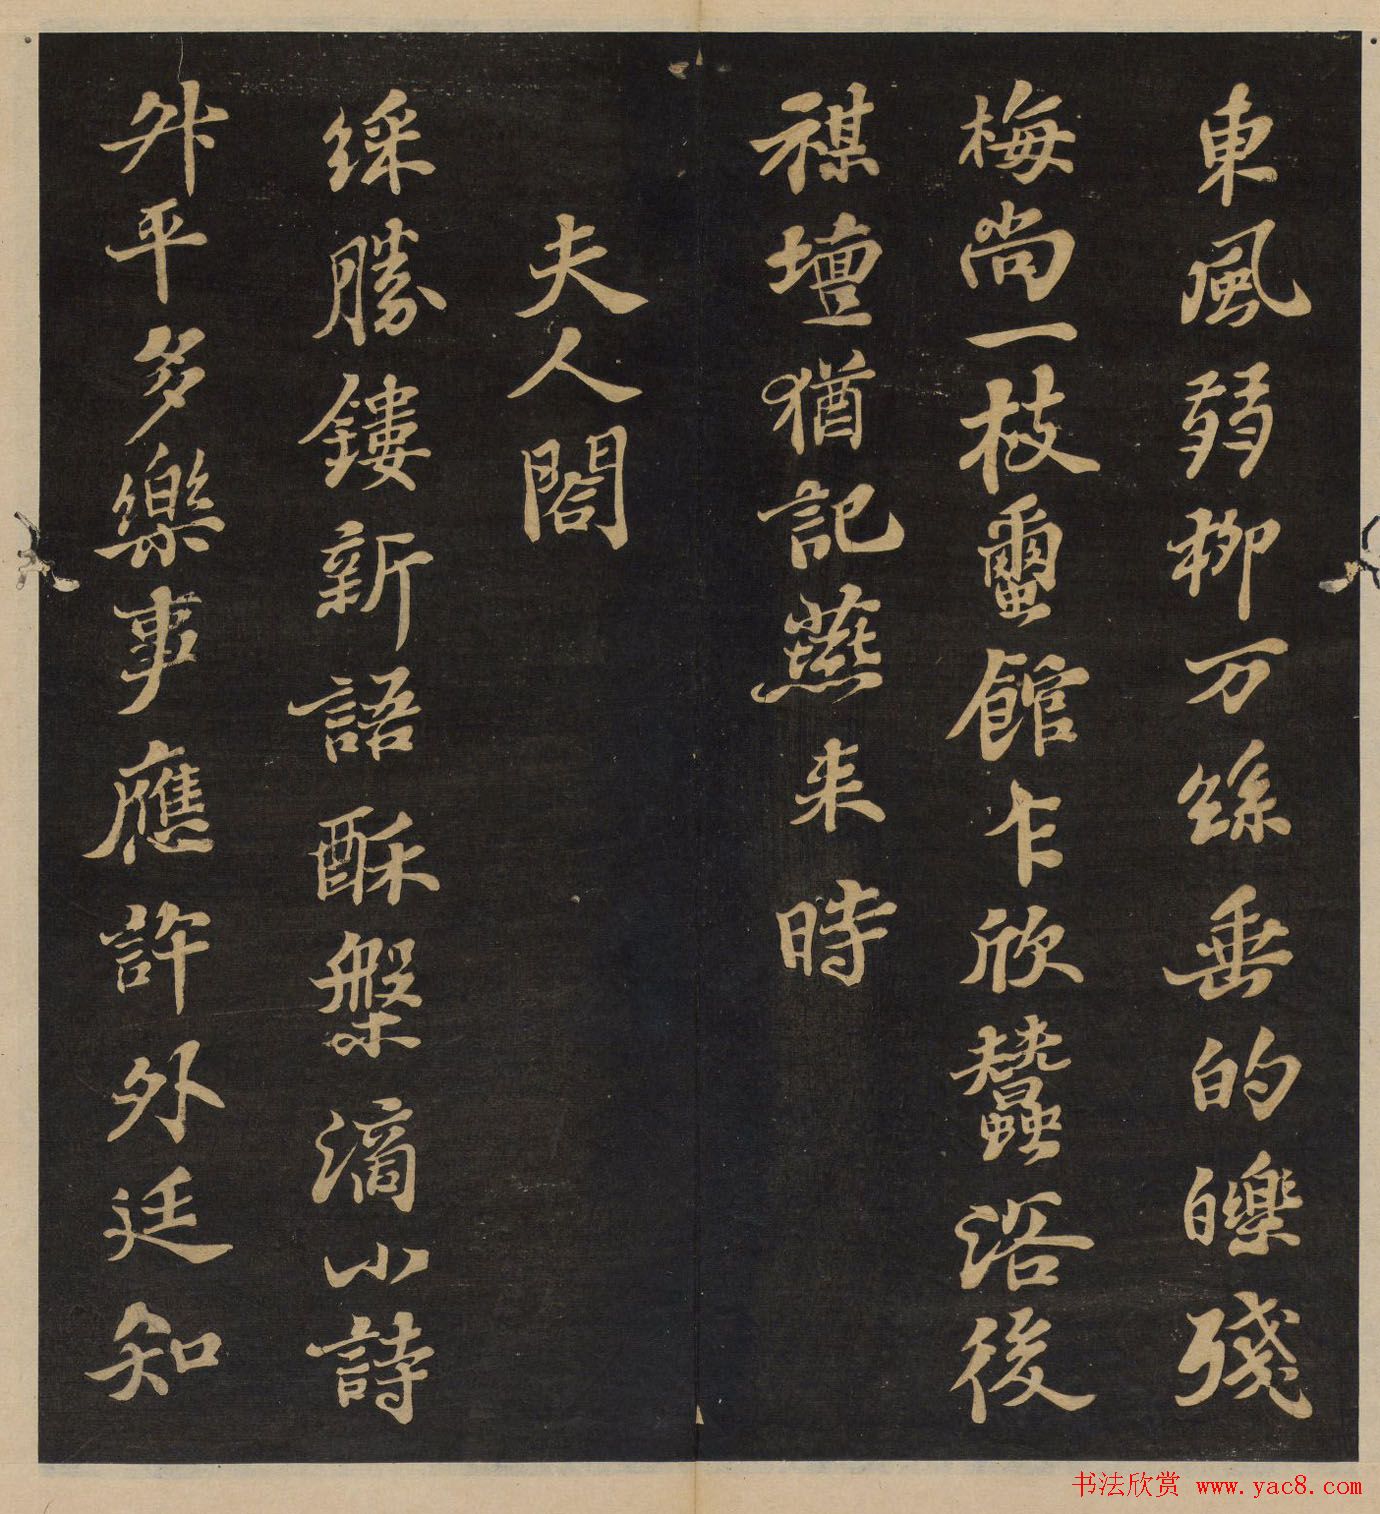 東風弱柳万絲垂的皪殘
梅尚一枝璽館乍欣蠶浴後
禖壇猶記燕来時
夫人閤
綵勝鏤新語酥槃滴小詩
升平多樂事應許外廷知
书法欣赏 www.yac8.com